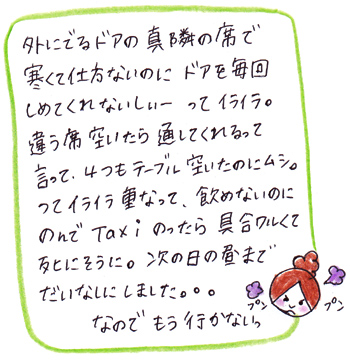 外にでるドアの真隣の席で
寒くて仕方ないのに ドアを毎回
しめてくれないしぃー ってイライラ。
違う席 空いたら 通してくれるって
言って、4つもテーブル 空いたのにムシ。
ってイライラ 重なって、飲めないのに
のんで Taxi のったら 具合ワルくて
死にそうに。次の日の昼まで
だいなしにしました。。。
なので もう行かないっ
プン プン